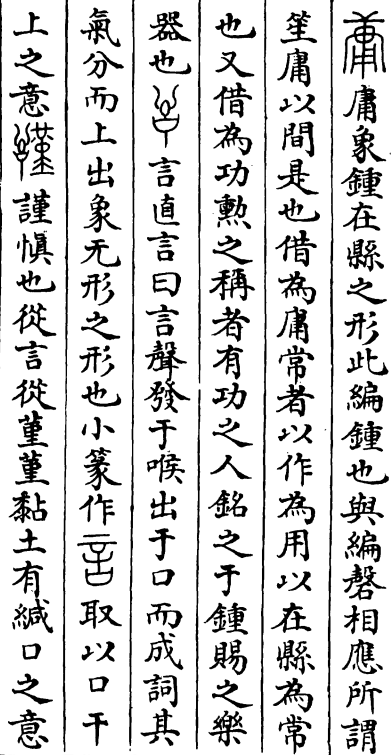 庸象鍾在縣之形此編鍾也與編磬相應所謂
笙庸以間是也借為庸常者以作為用以在縣為常
也又借為功勲之稱者有功之人銘之于鍾賜之樂
器也言直言曰言聲發于喉出于口而成詞其
氣分而上出象无形之形也小篆作取以口干
上之意謹慎也從言從堇堇黏土有緘口之意